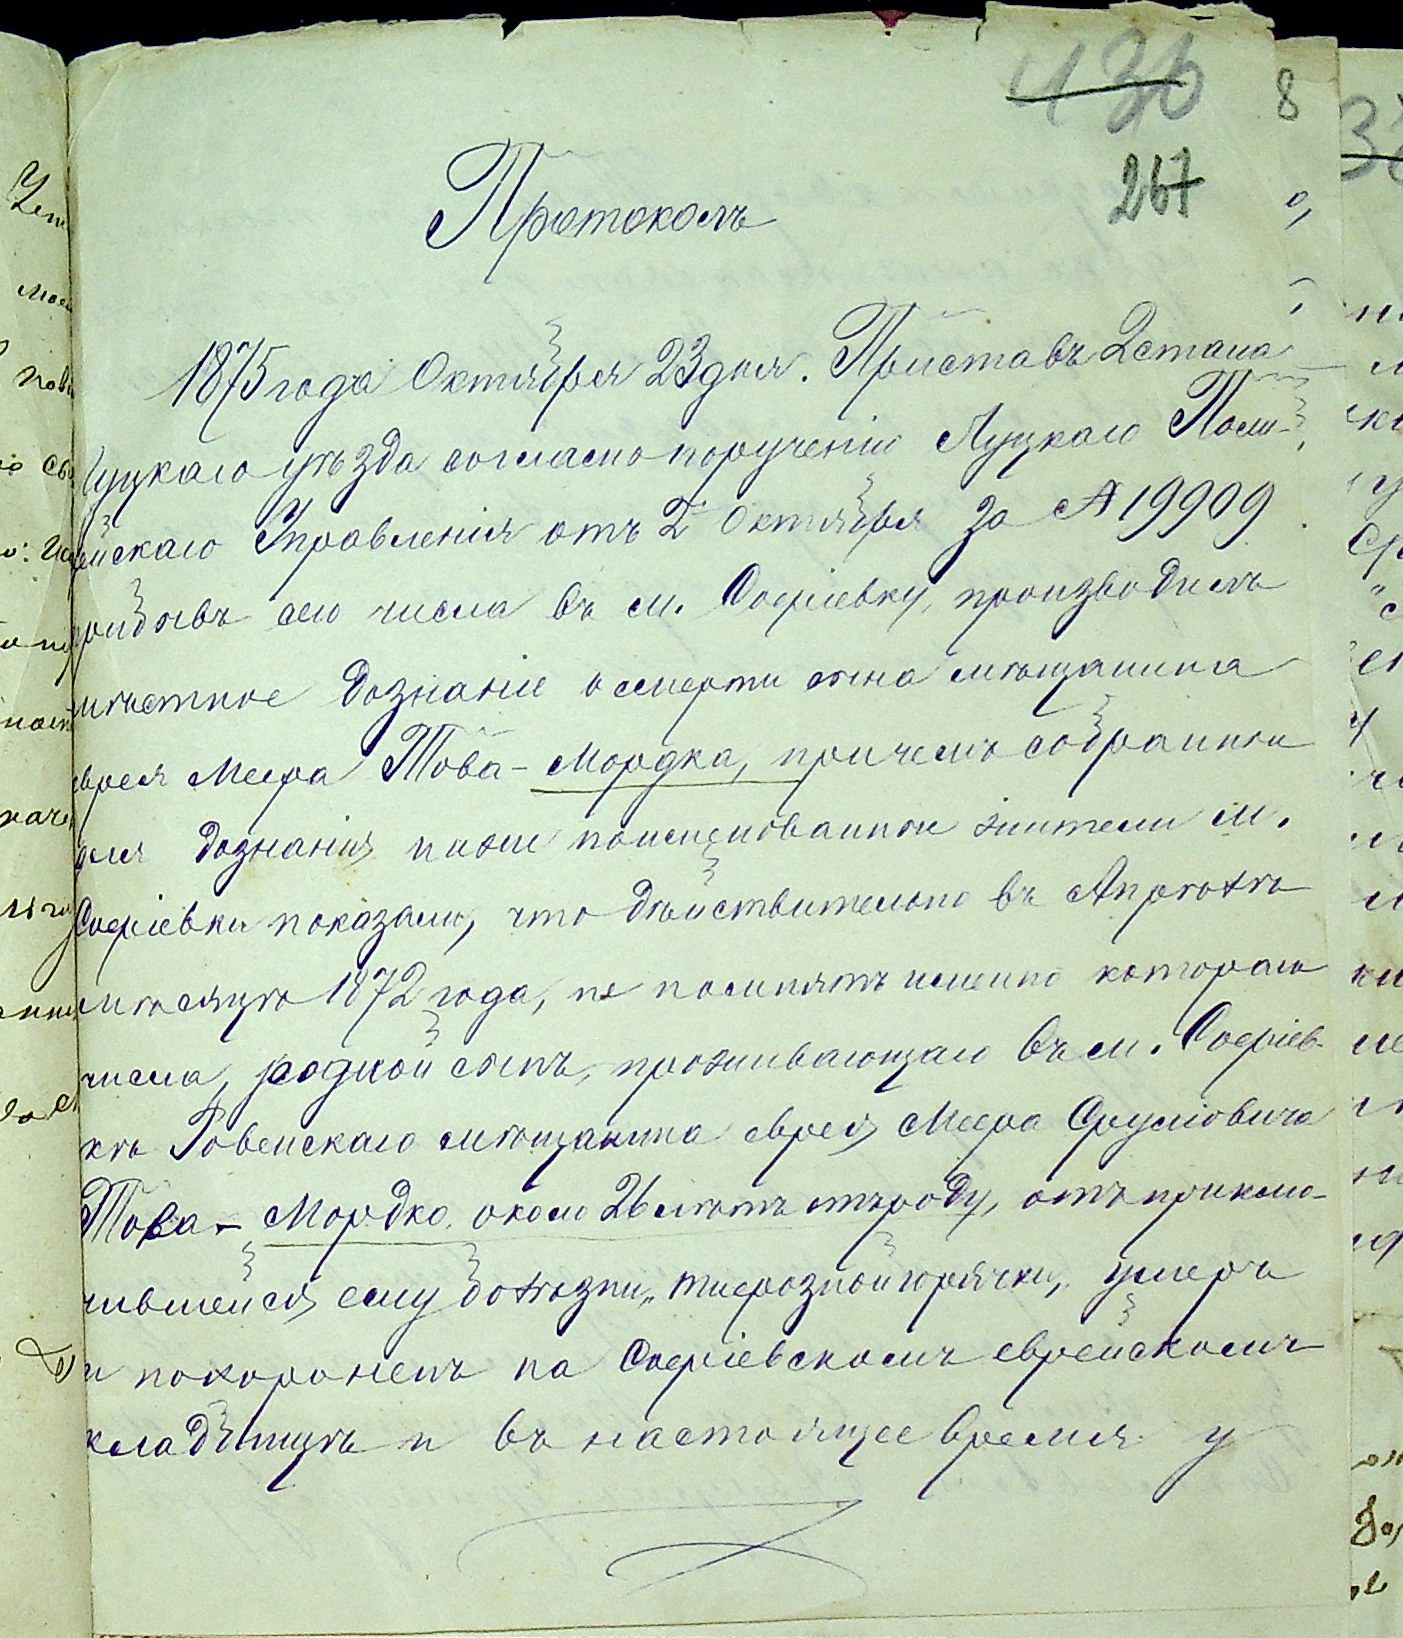 436
8
267
Протоколъ
1875 года Октября 23 дня. Приставъ 2 стана
Луцкаго уѣзда согласно порученію Луцкаго Поли-
цейскаго Управленія отъ 2 Октября за № 19909
прибывъ сего числа въ м. Софіевку, производилъ
мѣстное дознаніе о смерти сына мѣщанина
еврея Меера Това - Мордка, причемъ собранные
для дознанія ниже поименованные жители м.
Софіевки показали, что дѣйствительно въ Апрѣлѣ
мѣсяцѣ 1872 года, не помнятъ именно котораго
числа, родной сынъ, проживающаго въ м. Софіев-
кѣ Ровенскаго мѣщанина еврея Меера Сруліовича
Това - Мордко около 26 лѣтъ отъ роду, отъ приклю-
чившейся ему болѣзни „тифозной горячки„ умеръ
и похороненъ на Софіевскомъ еврейскомъ
кладбищѣ и въ настоящее время у